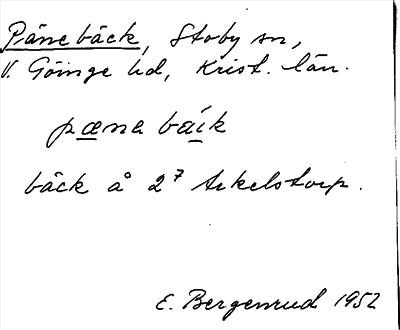 Pänebäck, Stoby sn,
V. Göinge hd, Krist. län.
pæna baík
bäck å 2⁷ Arkelstorp.
E. Bergenrud 1952